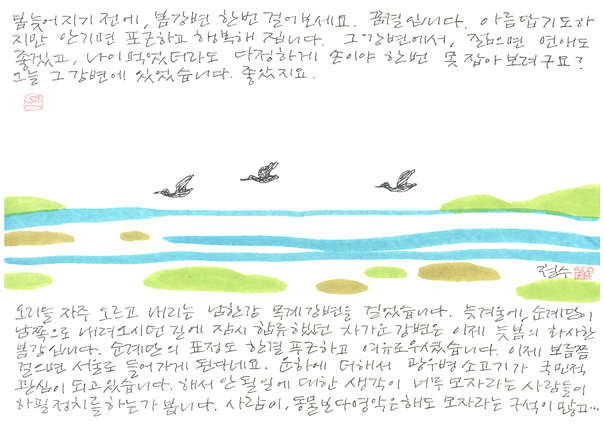 봄 늦어지기 전에, 봄강변 한번 걸어보세요. 꿈결입니다. 아름답기도 하
지만 안기면 포근하고 행복해집니다. 그 강변에서, 젊으면 연애도
좋겠고, 나이 먹었더라도 다정하게 손이야 한번 못 잡아보려구요?
오늘 그 강변에 있었습니다. 좋았지요.
철수
오리들 자주 오르고 내리는 남한강 목계강변을 걸었습니다. 늦겨울에, 순례단이
남쪽으로 내려오시던 길에 잠시 합류했던 차가운 강변은 이제 늦봄의 화사한
봄강입니다. 순례단의 표정도 한결 푸근하고 여유로우셨습니다. 이제 보름쯤
걸으면 서울로 들어가게 된다네요. 운하에 더해서 광우병 소고기가 국민적
관심이 되고 있습니다. 해서 안될 일에 대한 생각이 너무 모자라는 사람들이
하필 정치를 하는가 봅니다. 사람이, 동물보다 영악은 해도 모자라는 구석이 많고...